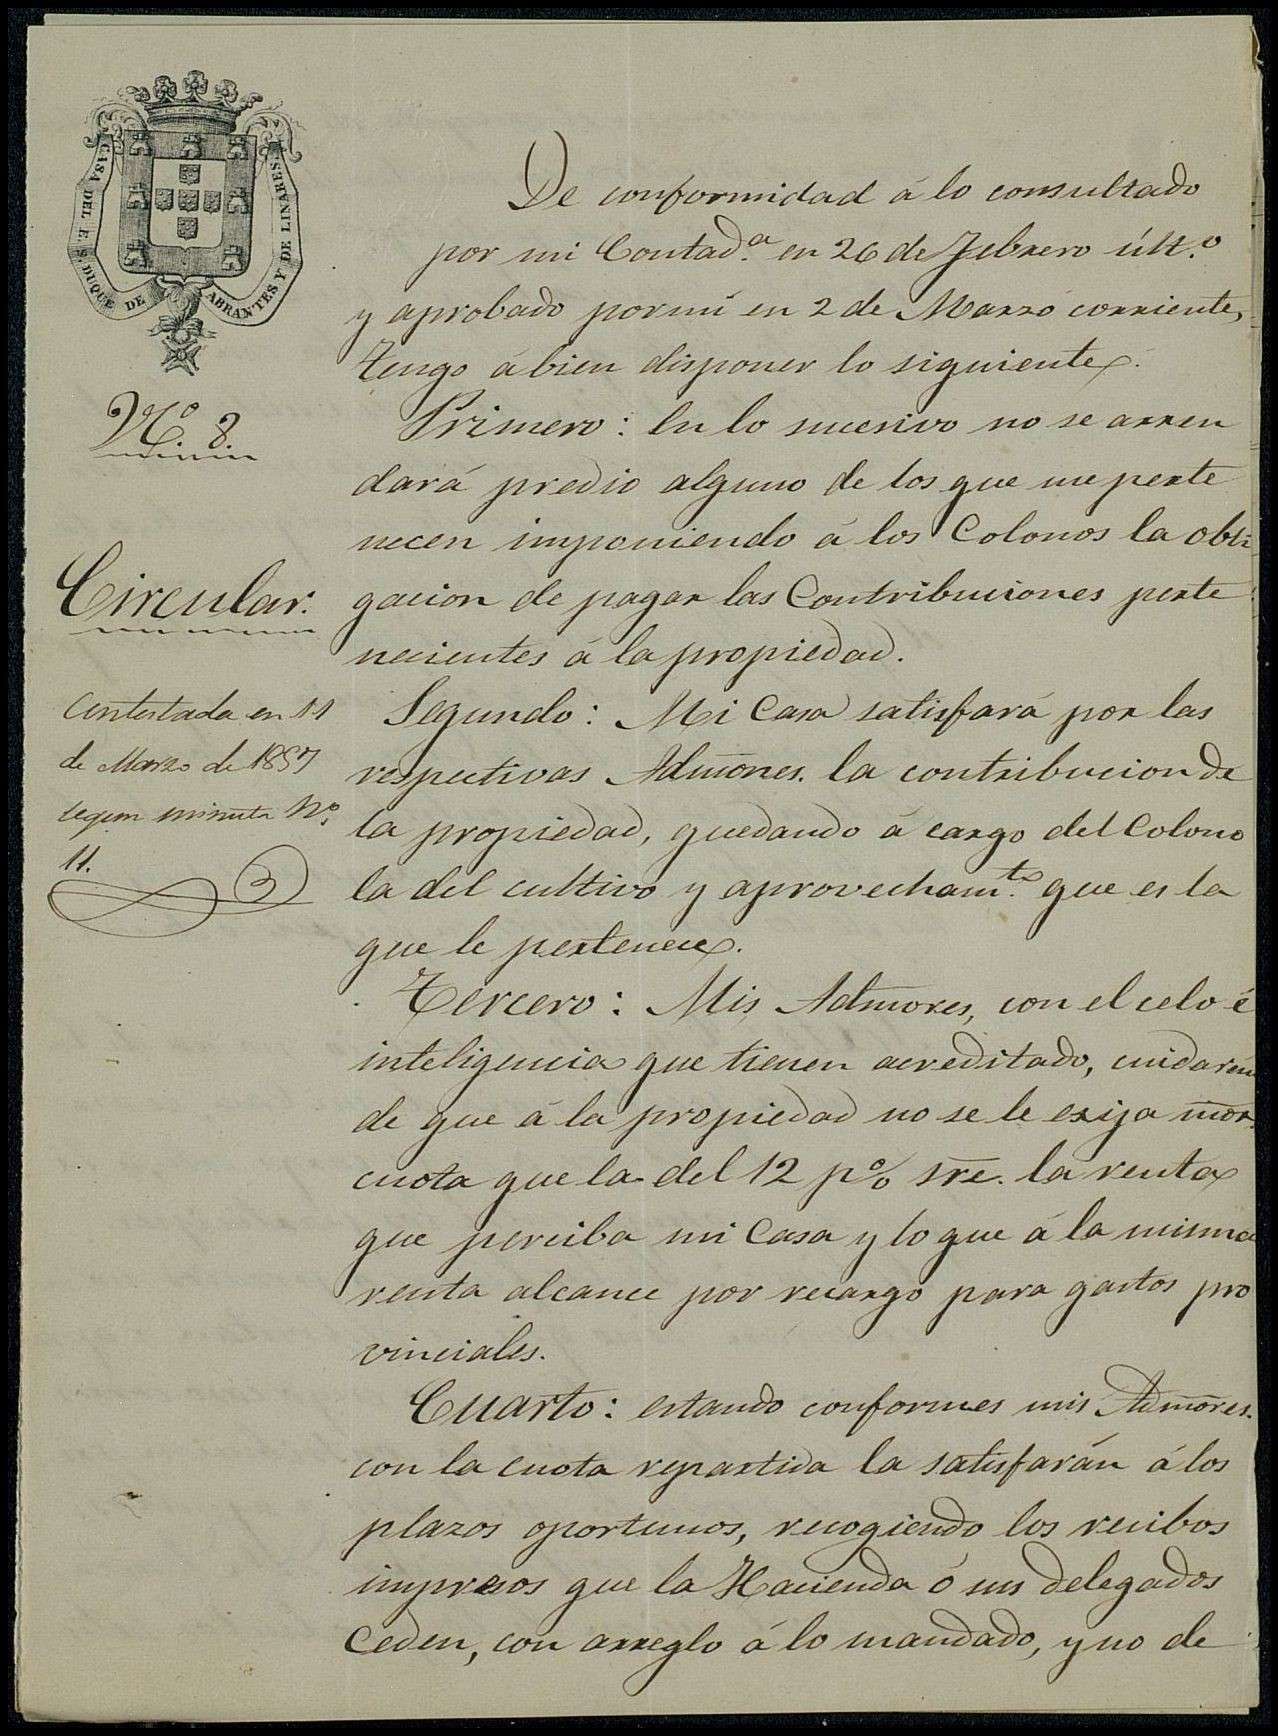 CASA DEL E. S. DUQUE DE ABRANTES Y DE LINARES.
Nº. 8.
Circular.
Contestada en 11
de Marzo de 1857
segun minuta Nº.
11.
De conformidad á lo consultado
por mi Contad.ª en 26 de Febrero últ.º
y aprobado por mi en 2 de Marzo corriente,
tengo á bien disponer lo siguiente.
Primero: En lo sucesivo no se arren
dará predio alguno de los que me perte
necen imponiendo á los Colonos la obli
gacion de pagar las Contribuciones perte
necientes á la propiedad.
Segundo: Mi Casa satisfará por las
respectivas Admones. la contribucion de
la propiedad, quedando á cargo del Colono
la del cultivo y aprovecham.to que es la
que le pertenece.
Tercero: Mis Admores, con el celo é
inteligencia que tienen acreditado, cuidarán
de que á la propiedad no se le exija mor.
cuota que la del 12 p% sre. la renta
que perciba mi Casa y lo que á la misma
renta alcance por recargo para gastos pro
vinciales.
Cuarto: estando conformes mis Admores.
con la cuota repartida la satisfarán á los
plazos oportunos, recogiendo los recibos
impresos que la Hacienda ó sus delegados
ceden, con arreglo á lo mandado, y no de